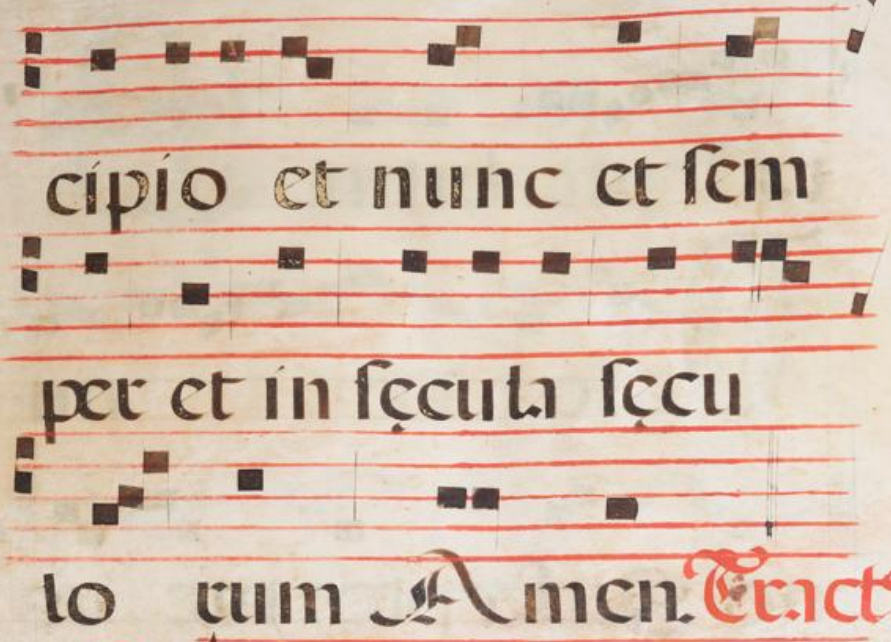 cipio et nunc et ſem
per et in ſęcula ſęcu
lo rum Amen. Tract